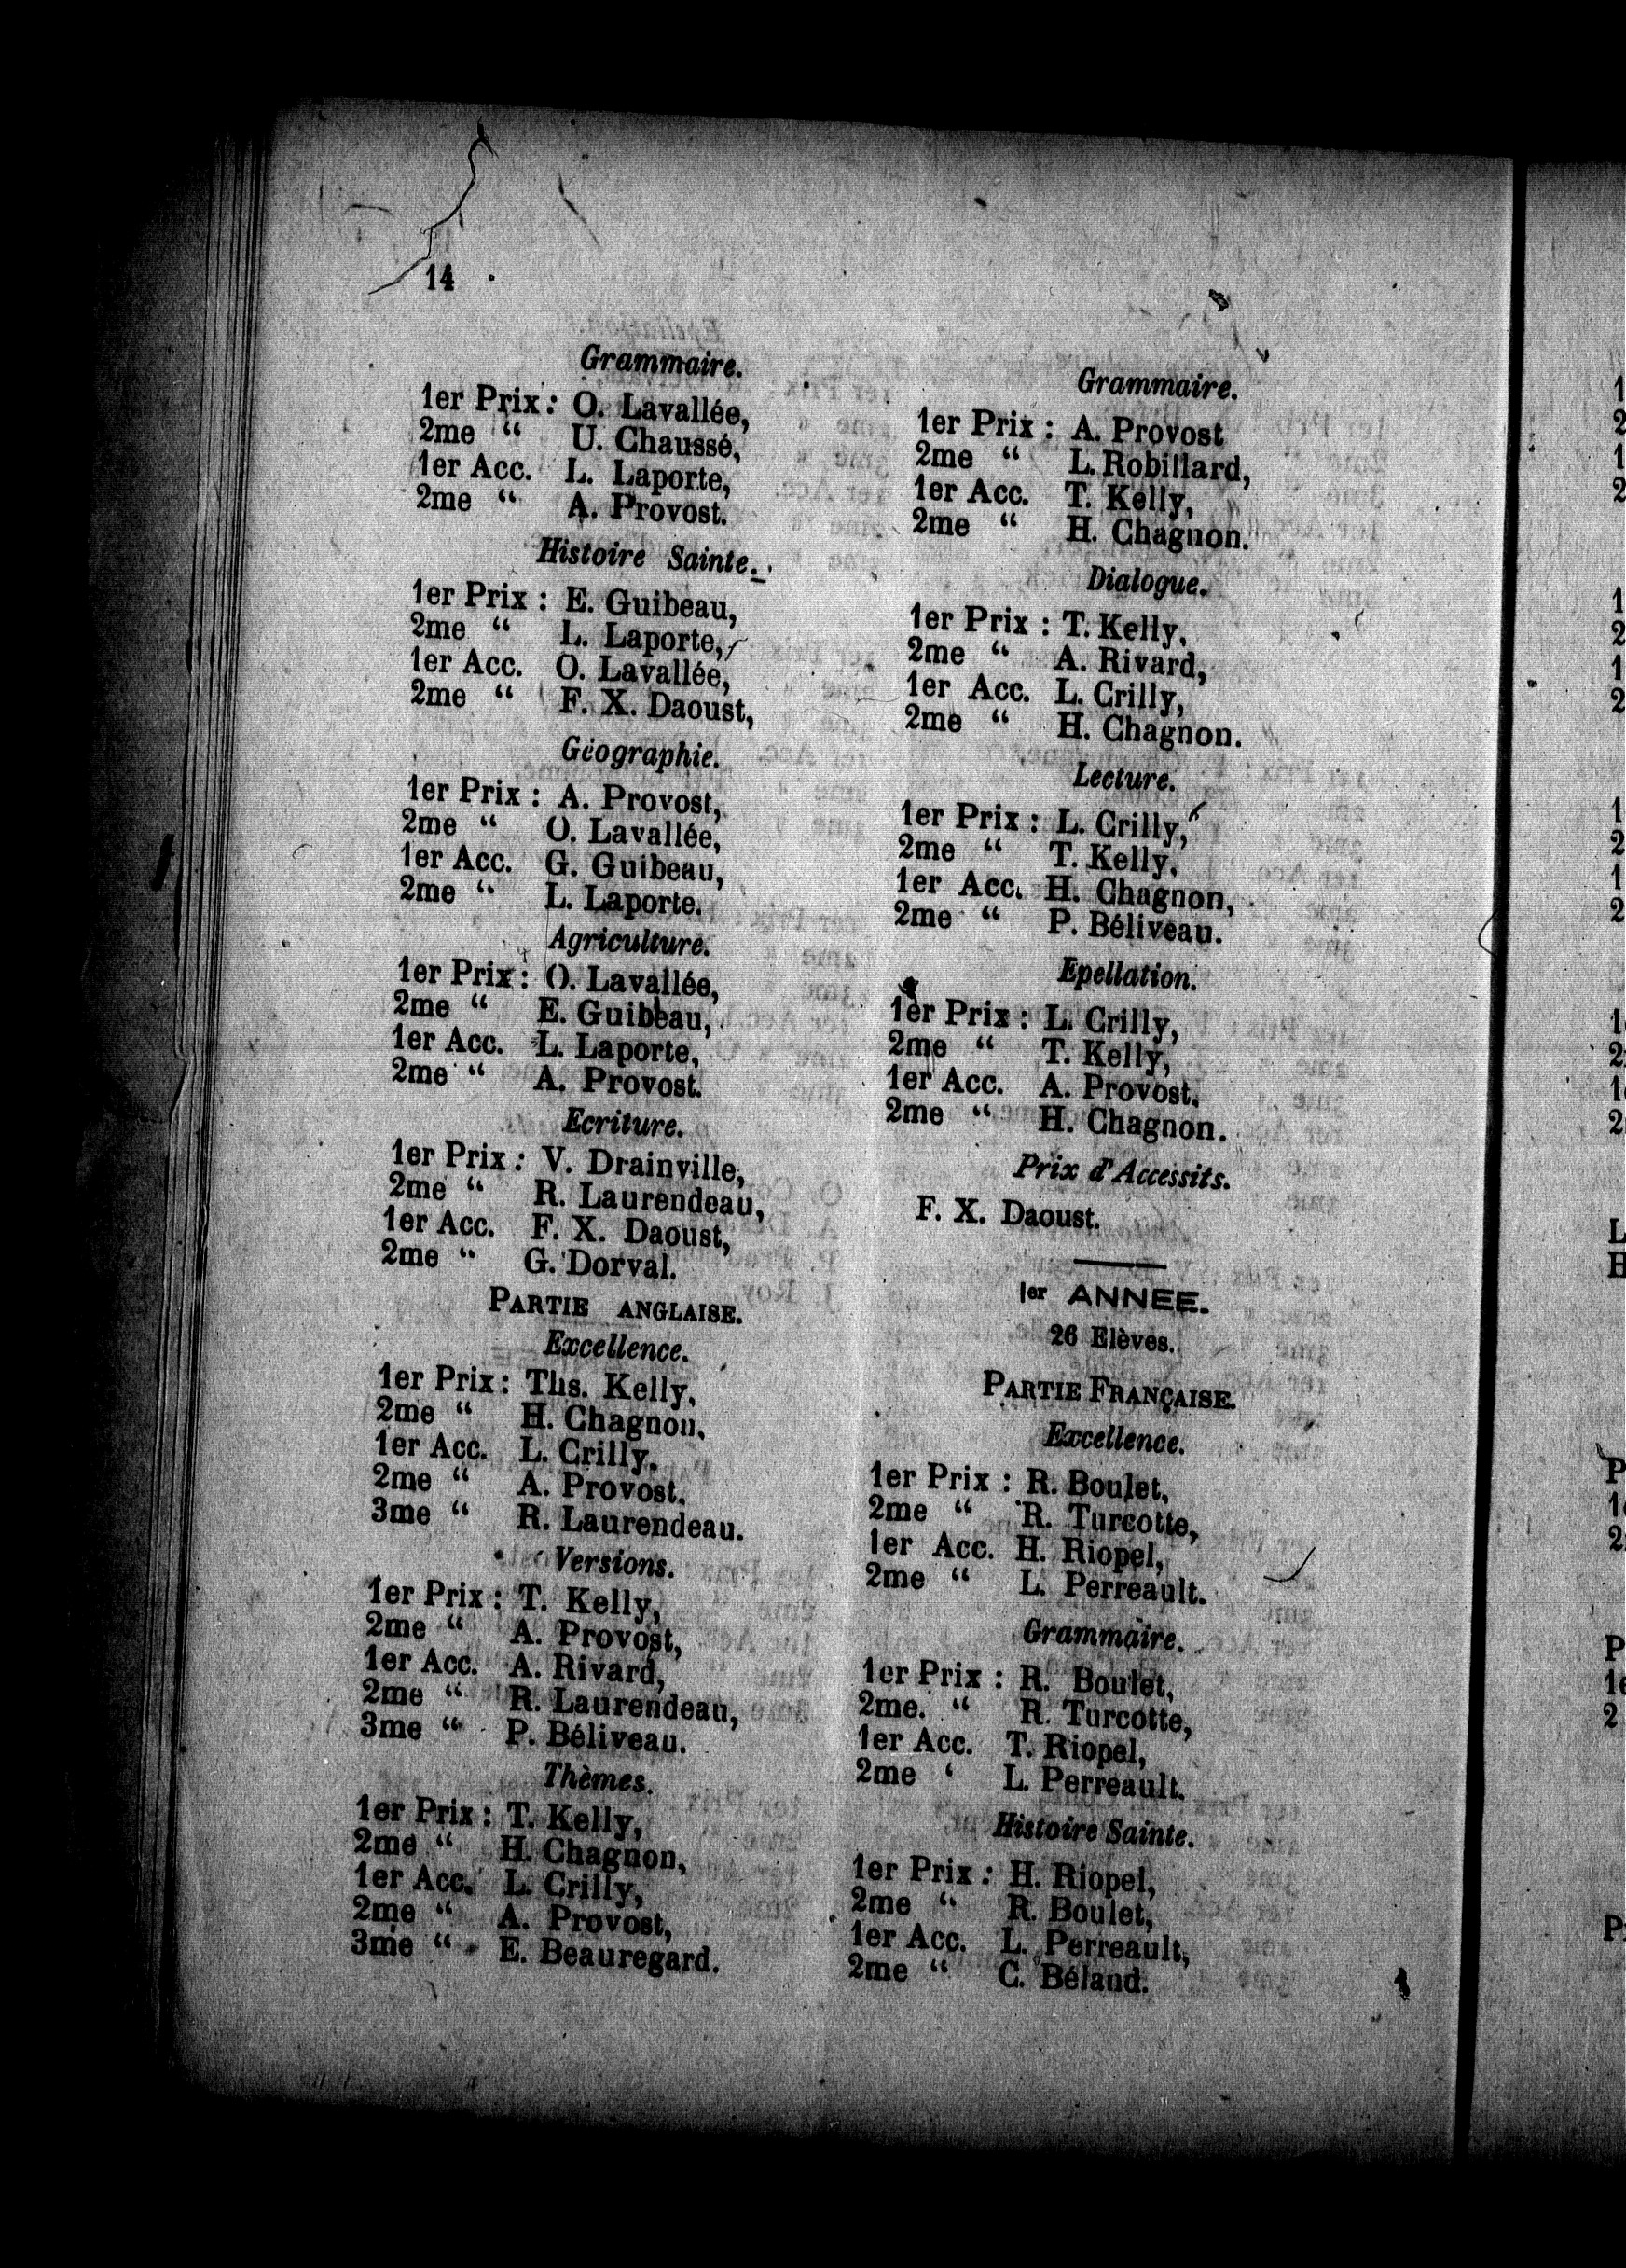 14
Grammaire.
1er Prix : O. Lavallée,
2me “ U. Chaussé,
1er Acc. L. Laporte,
2me “ A. Provost.
Histoire Sainte.
1er Prix : E. Guibeau,
2me “ L. Laporte,
1er Acc. O. Lavallée,
2me “ F. X. Daoust,
Géographie.
1er Prix : A. Provost,
2me “ O. Lavallée,
1er Acc. G. Guibeau,
2me “ L. Laporte.
Agriculture.
1er Prix : O. Lavallée,
2me “ E. Guibeau,
1er Acc. L. Laporte,
2me “ A. Provost.
Ecriture.
1er Prix : V. Drainville,
2me “ R. Laurendeau,
1er Acc. F. X. Daoust,
2me “ G. Dorval.
PARTIE ANGLAISE.
Excellence.
1er Prix : Ths. Kelly,
2me “ H. Chagnon,
1er Acc. L. Crilly,
2me “ A. Provost,
3me “ R. Laurendeau.
Versions.
1er Prix : T. Kelly,
2me “ A. Provost,
1er Acc. A. Rivard,
2me “ R. Laurendeau,
3me “ P. Béliveau.
Thèmes.
1er Prix : T. Kelly,
2me “ H. Chagnon,
1er Acc. L. Crilly,
2me “ A. Provost,
3me “ E. Beauregard.
Grammaire.
1er Prix : A. Provost
2me “ L. Robillard,
1er Acc. T. Kelly,
2me “ H. Chagnon.
Dialogue.
1er Prix : T. Kelly,
2me “ A. Rivard,
1er Acc. L. Crilly,
2me “ H. Chagnon.
Lecture.
1er Prix : L. Crilly,
2me “ T. Kelly,
1er Acc. H. Chagnon,
2me “ P. Béliveau.
Epellation.
1er Prix : L. Crilly,
2me “ T. Kelly,
1er Acc. A. Provost,
2me “ H. Chagnon.
Prix d'Accessits.
F. X. Daoust.
1er ANNEE.
26 Elèves.
PARTIE FRANÇAISE.
Excellence.
1er Prix : R. Boulet,
2me “ R. Turcotte,
1er Acc. H. Riopel,
2me “ L. Perreault.
Grammaire.
1er Prix : R. Boulet,
2me. “ R. Turcotte,
1er Acc. T. Riopel,
2me ‘ L. Perreault.
Histoire Sainte.
1er Prix : H. Riopel,
2me “ R. Boulet,
1er Acc. L. Perreault,
2me “ C. Béland.